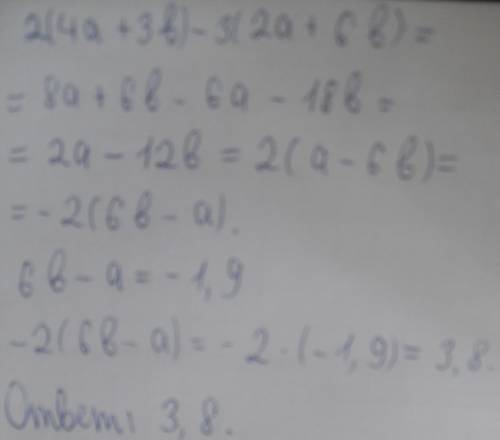 2(4a + 3в) - 3(2a + 6в) =
= 8a + 6в - 6a - 18в =
= 2a - 12в = 2(a - 6в) =
= - 2(6в - a).
6в - a = - 1,9
-2(6в - a) = - 2 · (-1,9) = 3,8.
Ответ: 3,8.